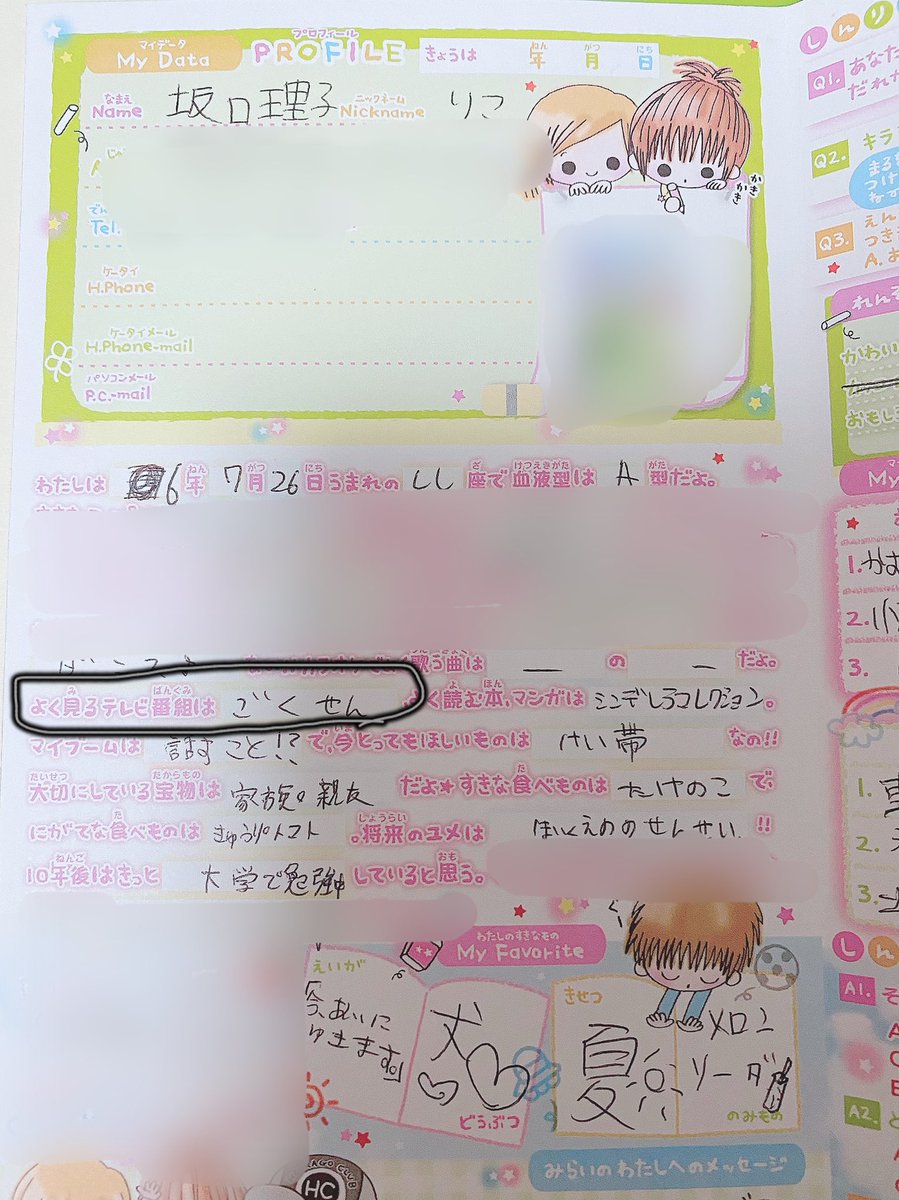 マイデータ
My Data
プロフィール
PROFILE
きょうは 年 ねん 月 がつ 日 にち
なまえ
Name 坂口理子
ニックネーム
Nickname りこ
かきかき
でん
Tel.
ケータイ
H.Phone
ケータイメール
H.Phone-mail
パソコンメール
P.C.-mail
わたしは 6年 7月 26日うまれの しし 座で血液型は A 型だよ。
歌う曲は ー の ー だよ。
よく見るテレビ番組は ごくせん よく読む本、マンガは シンデレラコレクション。
マイブームは 話すこと!? で、今とってもほしいものは けい帯 なの!!
大切にしている宝物は 家族。親友 だよ★すきな食べものは たけのこ で、
にがてな食べものは きゅうり。トマト 。将来のユメは ほいくえんのせんせい !!
10年後はきっと 大学で勉強中 していると思う。
わたしのすきなもの
My Favorite
えいが
「今、あいにゆきます」
犬
どうぶつ
きせつ
夏
メロンソーダ
のみもの
みらいのわたしへのメッセージ
HC
しんり
Q1. あなた
だれか
Q2. キラ
まるを
つけ
なす
Q3. えん
つき
A.
れん
かわい
おもし
My
1.
2.
3.
1.
2.
3.
しん
A1. そ
A2.